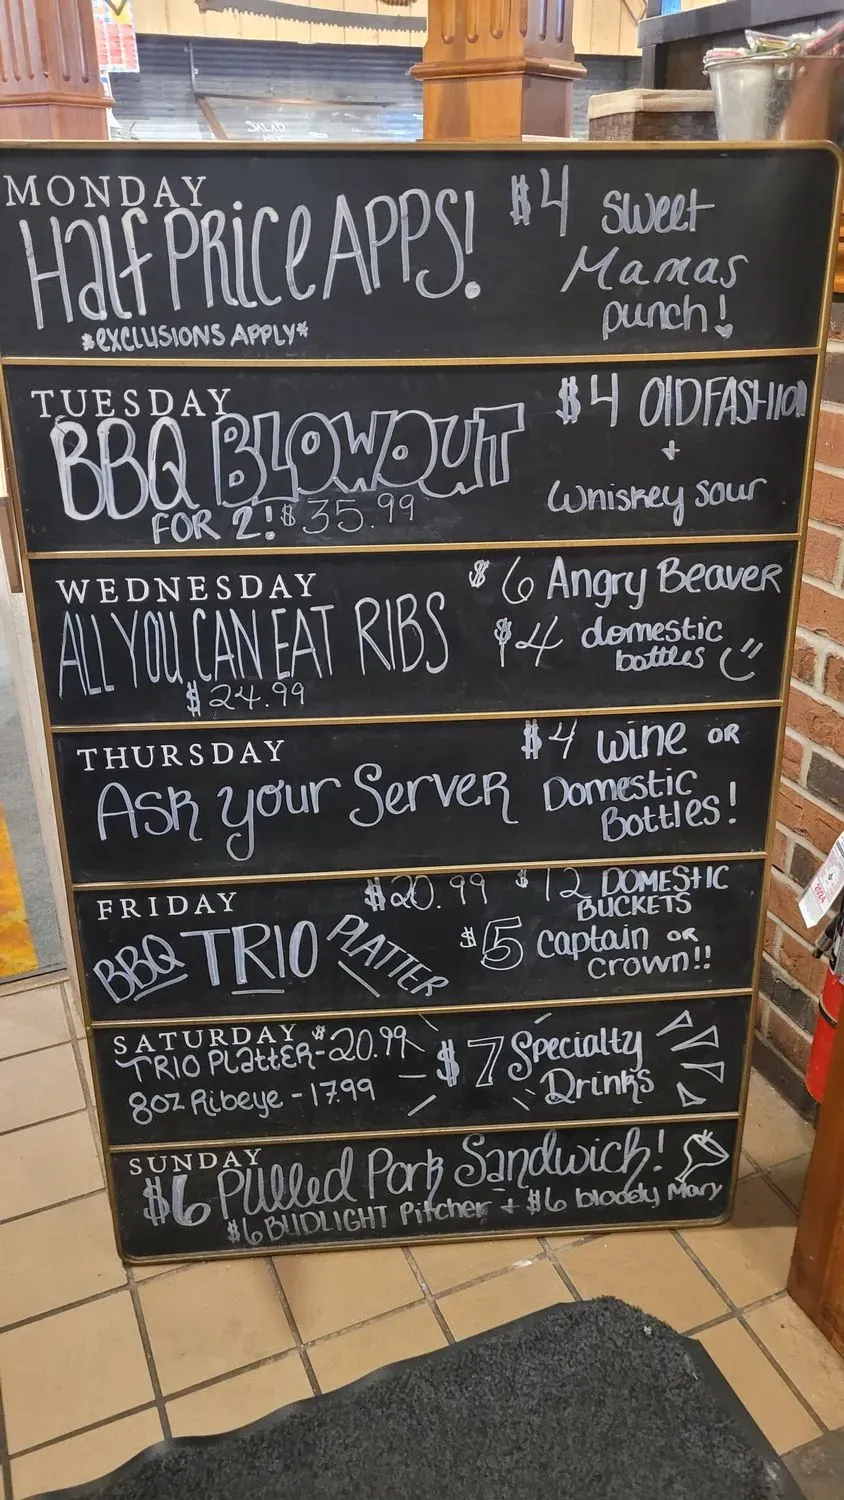 MONDAY
Half Price APPS!
*EXCLUSIONS APPLY*
$4 sweet
Mamas
punch!
TUESDAY
BBQ BLOWOUT
FOR 2! $35.99
$4 OLDFASHION
+
Whiskey sour
WEDNESDAY
ALL YOU CAN EAT RIBS
$24.99
$6 Angry Beaver
$4 domestic
bottles
THURSDAY
Ask your Server
$4 wine or
Domestic
Bottles!
FRIDAY
$20.99
BBQ TRIO PLATTER
$12 DOMESTIC
BUCKETS
$5 Captain or
Crown!!
SATURDAY
TRIO PLattER-$20.99
8oz Ribeye - 17.99
$7 Specialty
Drinks
SUNDAY
$6 Pulled Pork Sandwich!
$6 BUDLIGHT Pitcher + $6 bloody Mary